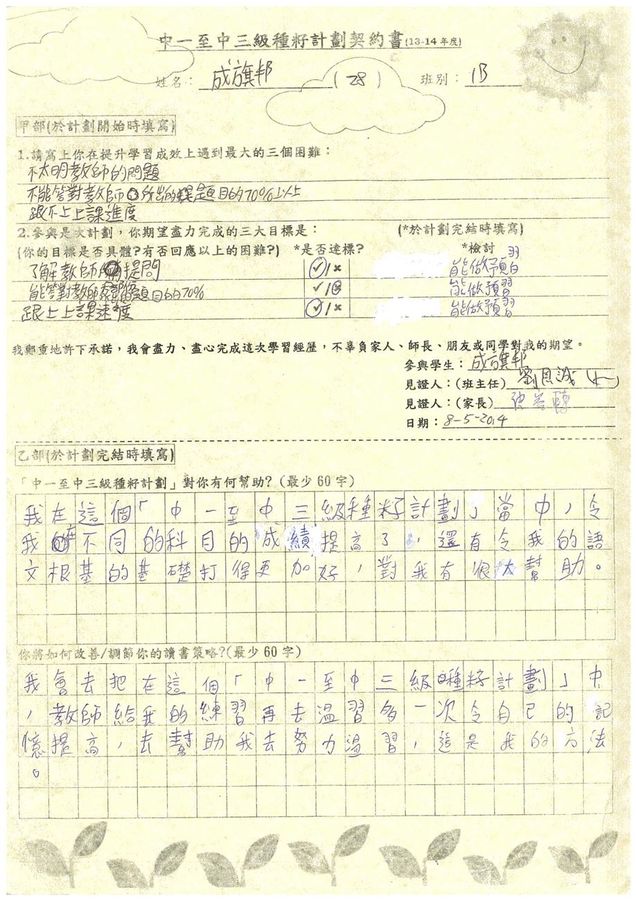 中一至中三級種籽計劃契約書(13-14年度)
姓名：成旗邦 (28) 班別：1B
甲部(於計劃開始時填寫)
1.請寫上你在提升學習成效上遇到最大的三個困難：
不太明教師的問題
不能答對教師所出的題目的70%以上
跟不上上課進度
2.參與是次計劃，你期望盡力完成的三大目標是： (*於計劃完結時填寫)
(你的目標是否具體?有否回應以上的困難?) *是否達標? *檢討
了解教師的提問 ✓/× 能做預習
能答對教師題目的70% ✓/× 能做預習
跟上上課速度 ✓/× 能做預習
我鄭重地許下承諾，我會盡力、盡心完成這次學習經歷，不辜負家人、師長、朋友或同學對我的期望。
參與學生：成旗邦
見證人：(班主任)
見證人：(家長)
日期：8-5-2014
乙部(於計劃完結時填寫)
「中一至中三級種籽計劃」對你有何幫助?(最少60字)
我在這個「中一至中三級種籽計劃」當中，令
我在不同的科目的成績提高了，還有令我的語
文根基的基礎打得更加好，對我有很大幫助。
你將如何改善/調節你的讀書策略?(最少60字)
我會去把在這個「中一至中三級種籽計劃」中
，教師給我的練習再去溫習多一次令自己的記
憶提高，去幫助我去努力溫習，這是我的方法
。